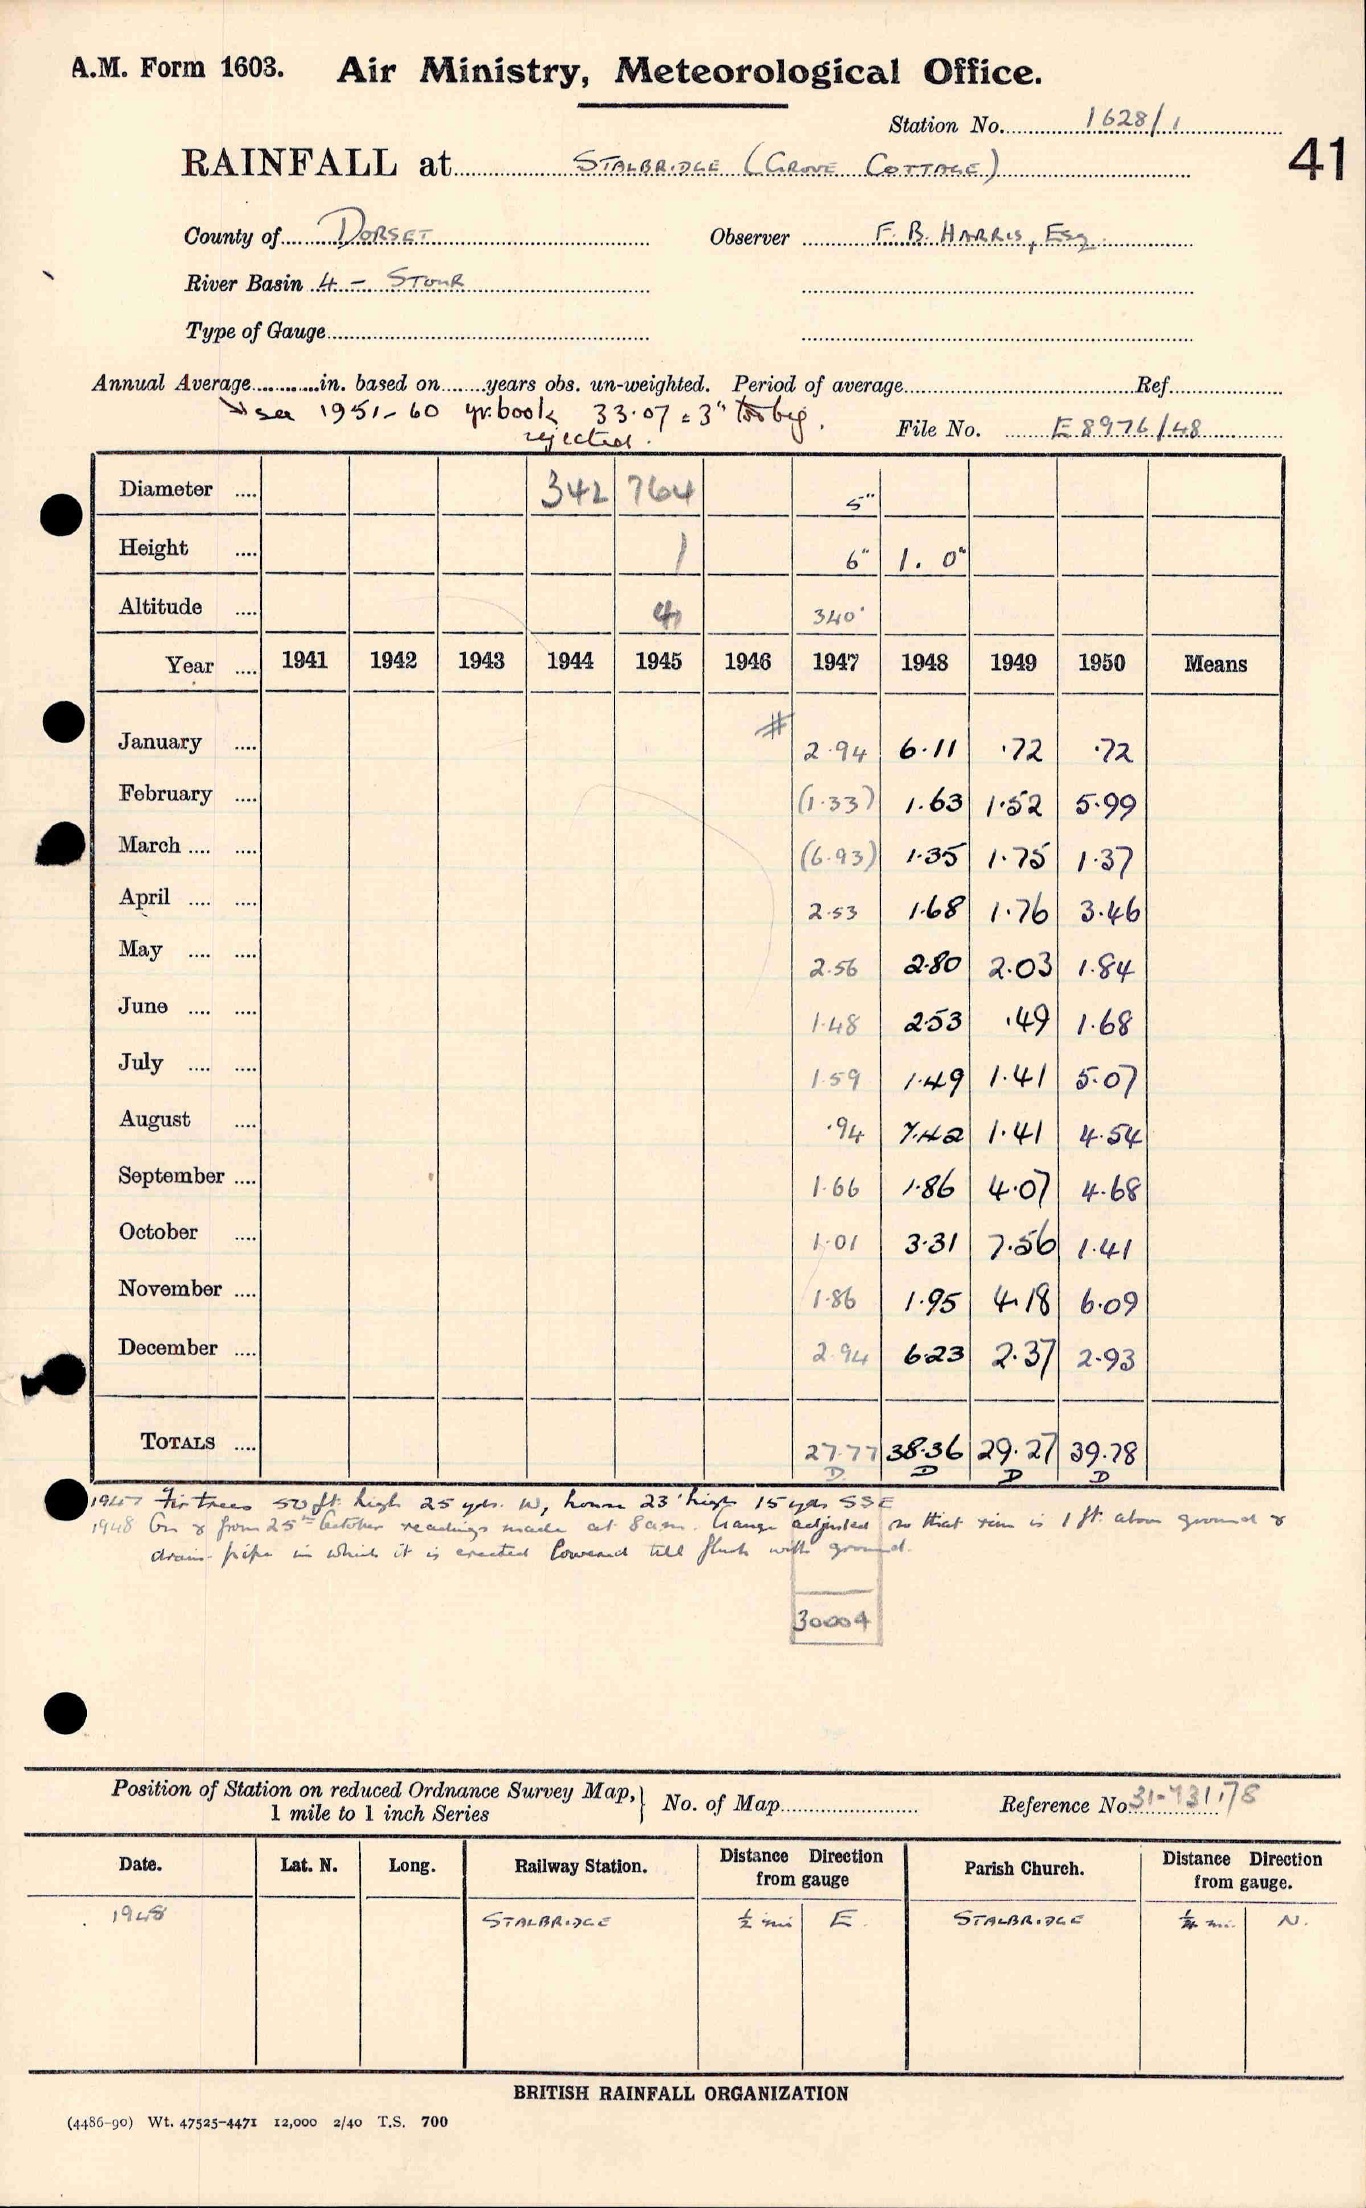 A.M. Form 1603. Air Ministry, Meteorological Office.
Station No. 1628/1
41
RAINFALL at STALBRIDGE (GROVE COTTAGE)
County of DORSET Observer F. B. HARRIS, Esq.
River Basin 4 – STOUR
Type of Gauge
Annual Average in. based on years obs. un-weighted. Period of average Ref
see 1951-60 yr. book 33.07 = 3" too big.
rejected.
File No. E 8976/48
Diameter .... 342 764 5"
Height .... 1 6" 1. 0"
Altitude .... 4 340'
Year .... 1941 1942 1943 1944 1945 1946 1947 1948 1949 1950 Means
January .... # 2.94 6.11 .72 .72
February .... (1.33) 1.63 1.52 5.99
March .... .... (6.93) 1.35 1.75 1.37
April .... .... 2.53 1.68 1.76 3.46
May .... .... 2.56 2.80 2.03 1.84
June .... .... 1.48 2.53 .49 1.68
July .... .... 1.59 1.49 1.41 5.07
August .... .94 7.42 1.41 4.54
September .... 1.66 1.86 4.07 4.68
October .... 1.01 3.31 7.56 1.41
November .... 1.86 1.95 4.18 6.09
December .... 2.94 6.23 2.37 2.93
TOTALS .... 27.77 38.36 29.27 39.78
D D D D
1947 Fir trees 50 ft. high 25 yds. W, house 23' high 15 yds SSE
1948 On & from 25th October readings made at 8 am. Gauge adjusted so that rim is 1 ft. above ground &
drain-pipe in which it is erected lowered till flush with ground.
30004
Position of Station on reduced Ordnance Survey Map, 1 mile to 1 inch Series } No. of Map Reference No. 31-731.178
Date. Lat. N. Long. Railway Station. Distance Direction from gauge Parish Church. Distance Direction from gauge.
1948 STALBRIDGE ½ mi E. STALBRIDGE ¼ mi. N.
BRITISH RAINFALL ORGANIZATION
(4486-90) Wt. 47525-4471 12,000 2/40 T.S. 700